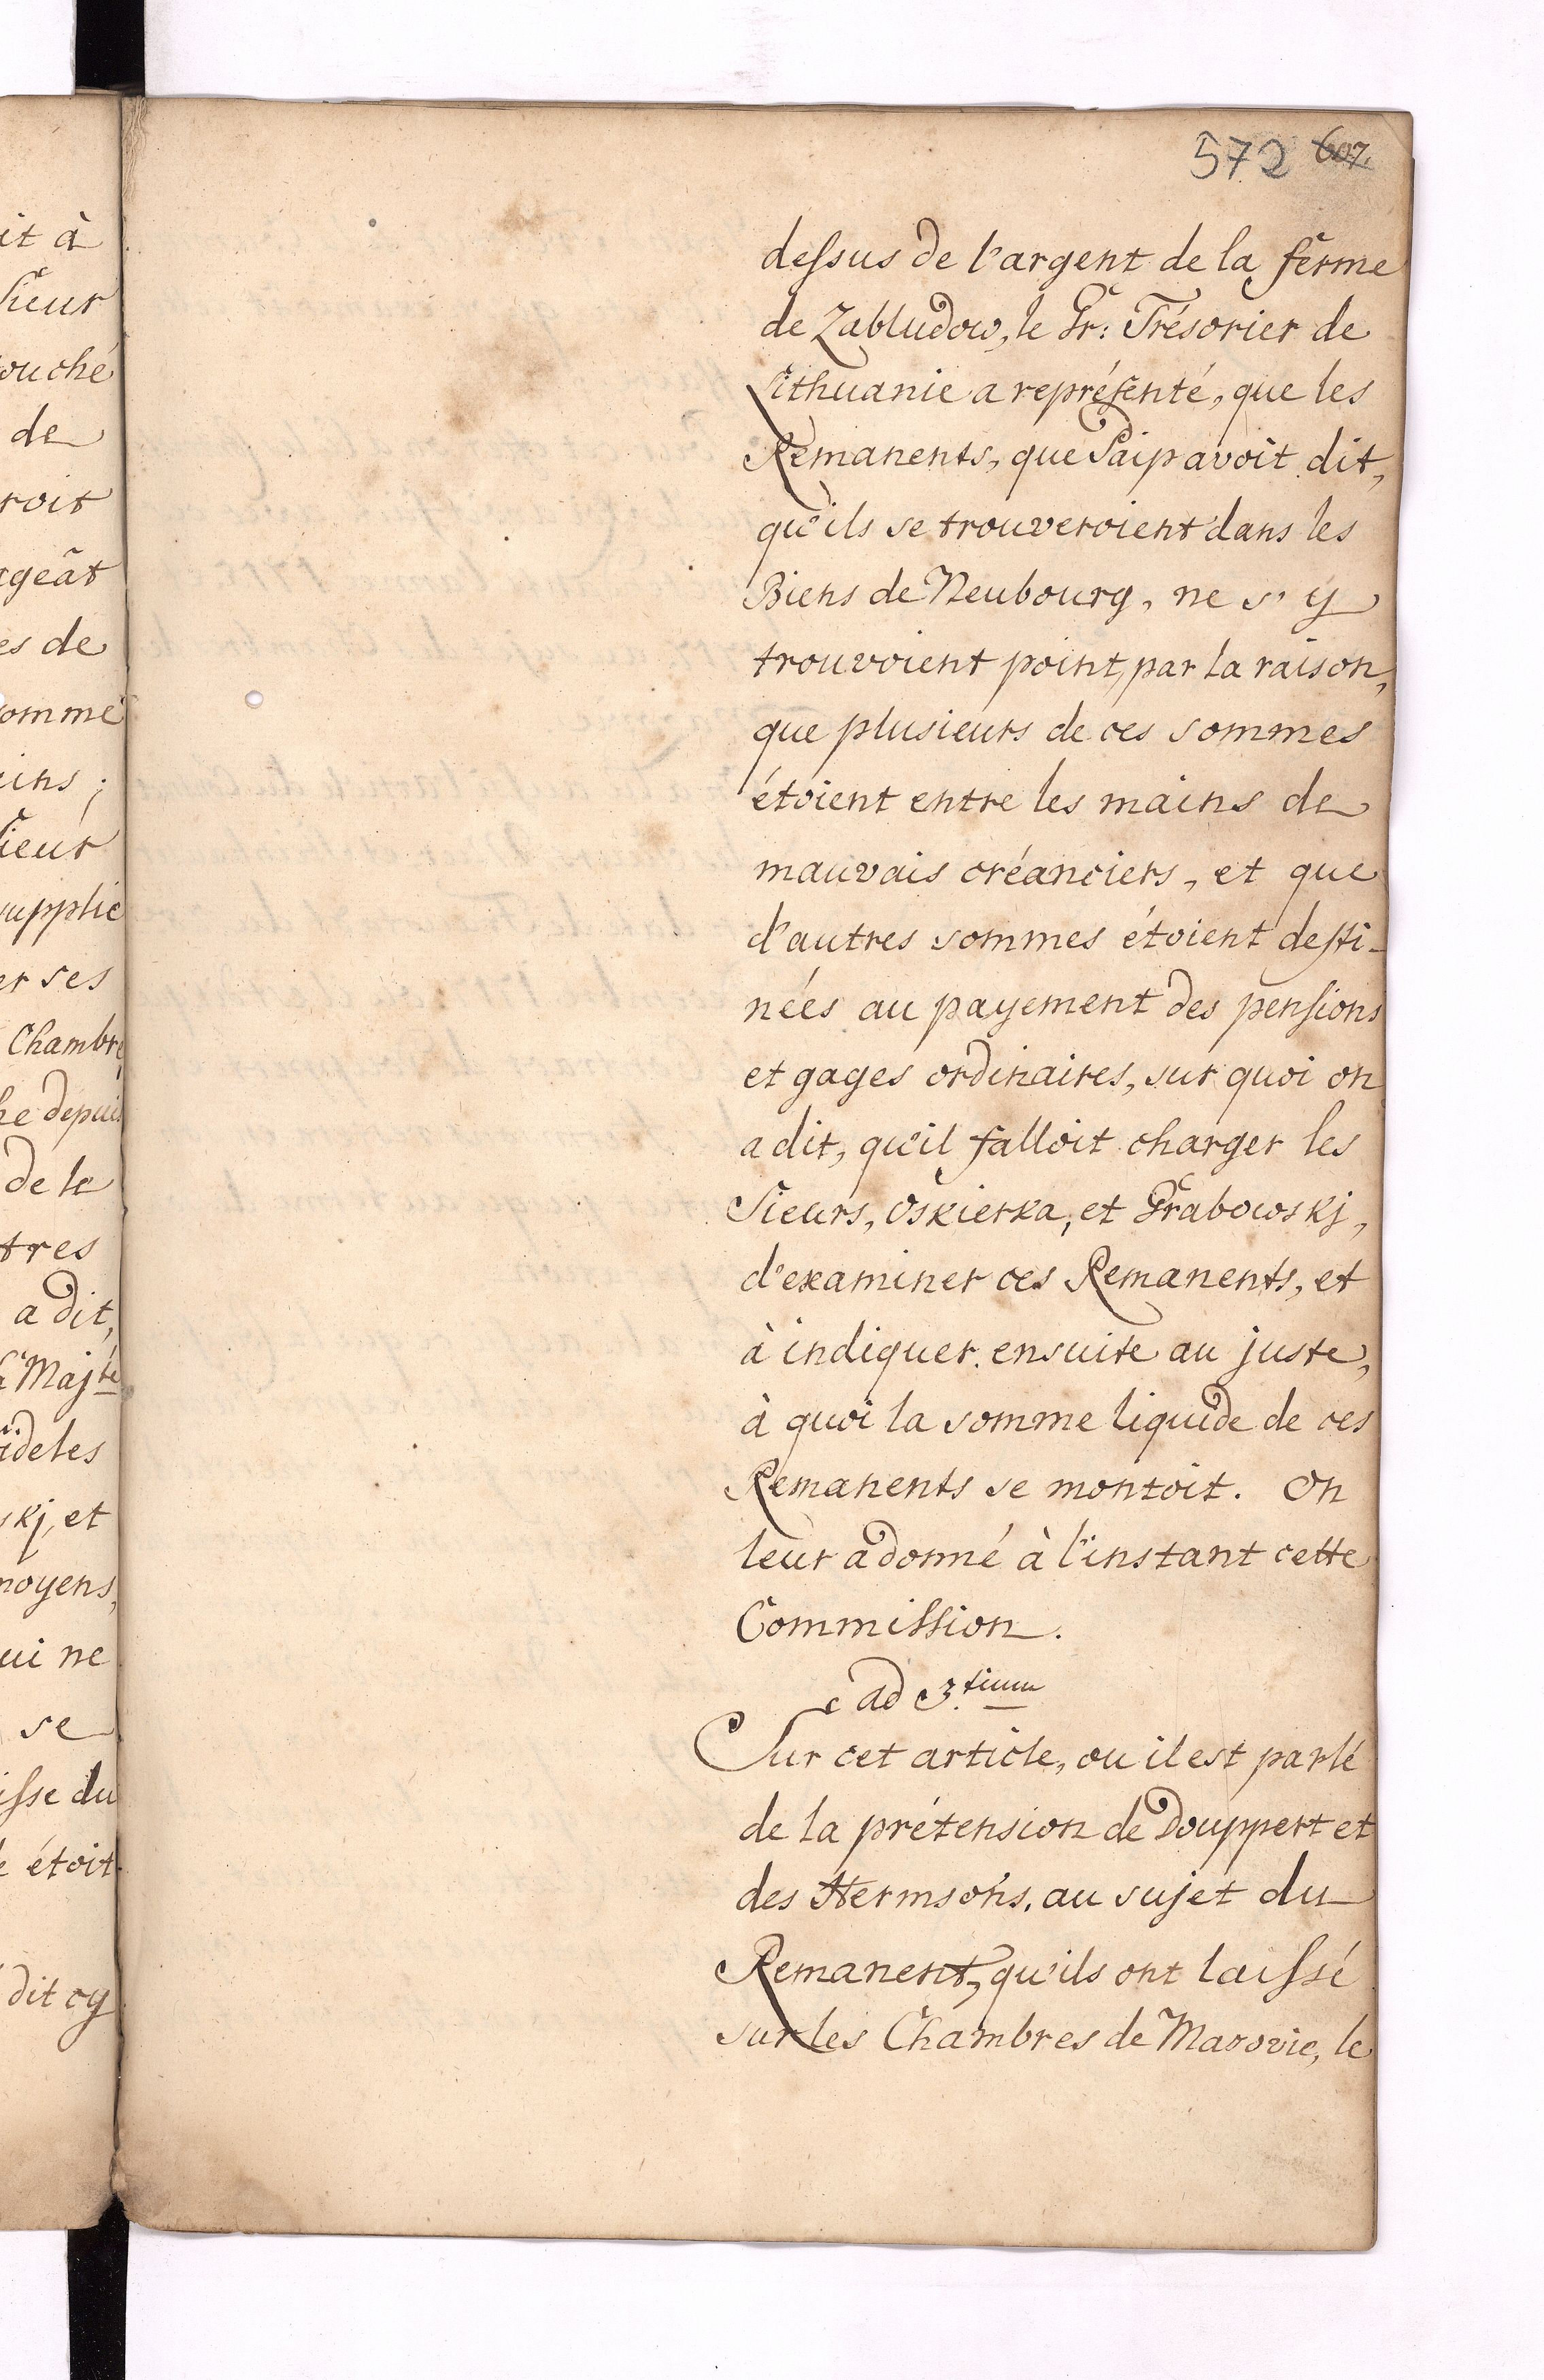 572 607.
dessus de l'argent de la ferme
de Zabludow, le Gr: Trésorier de
Lithuanie a représenté, que les
Remanents, que Paip avoit dit,
qu'ils se trouveroient dans les
Biens de Neubourg, ne s'y
trouvoient point, par la raison,
que plusieurs de ces sommes
étoient entre les mains de
mauvais créanciers, et que
d'autres sommes étoient desti-
nées au payement des pensions
et gages ordinaires, sur quoi on
a dit, qu'il falloit charger les
Sieurs, Oskierka, et Grabowskj,
d'examiner ces Remanents, et
à indiquer ensuite au juste,
à quoi la somme liquide de ces
Remanents se montoit. On
leur a donné à l'instant cette
Commission.
ad 3.tium
Sur cet article, ou il est parlé
de la prétension de Douppert et
des Hermsons, au sujet du
Remanent, qu'ils ont laissé
sur les Chambres de Masovie, le
it à
Sieur
ouché
de
roit
ageât
es de
omme
ins;
Sieur
supplie
er ses
Chambre
he depuis
de le
tres
a dit,
Majté
ideles
skj, et
moyens,
ui ne
se
isse du
é étoit
dit cy